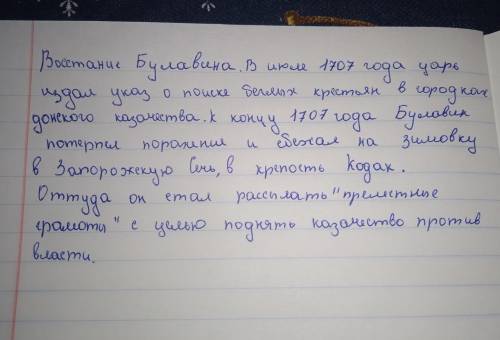 Восстание Булавина. В июле 1707 года царь
издал указ о поиске беглых крестьян в городках
донского казачества. К концу 1707 года Булавин
потерпел поражения и сбежал на зимовку
в Запорожскую Сечь, в крепость Кодак.
Оттуда он стал рассылать "прелестные
грамоты" с целью поднять казачество против
власти.